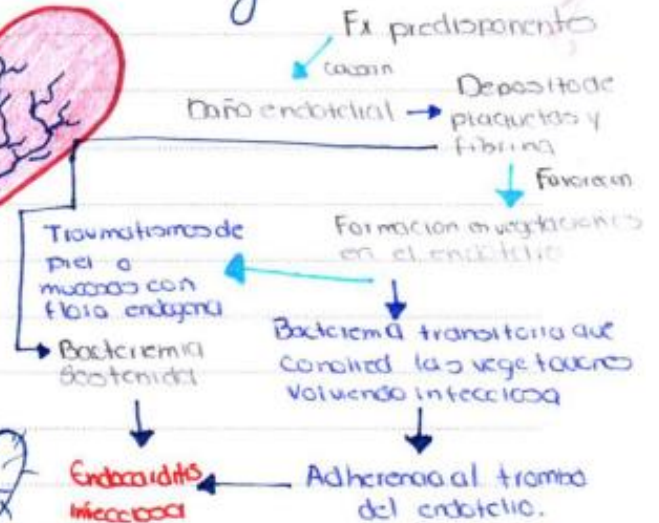 Fx predisponentes
causan
Daño endotelial
Deposito de
plaquetas y
fibrina
Favorecen
Formacion en vegetaciones
en el endotelio
Traumatismos de
piel o
mucosas con
flora endogena
Bacteriemia
Sostenida
Bacteriema transitoria que
las vegetaciones
volviendo infecciosa
Endocarditis
infecciosa
Adherencia al trombo
del endotelio.